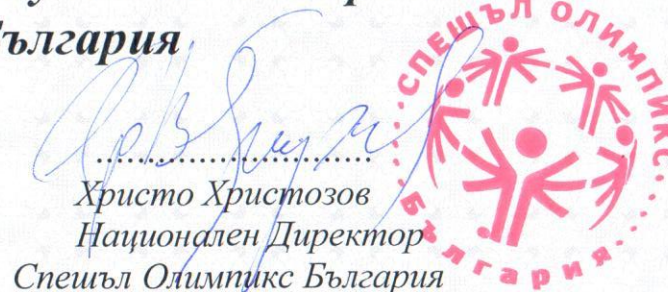 България
............................
Христо Христозов
Национален Директор
Спешъл Олимпикс България
СПЕШЪЛ ОЛИМПИКС
България